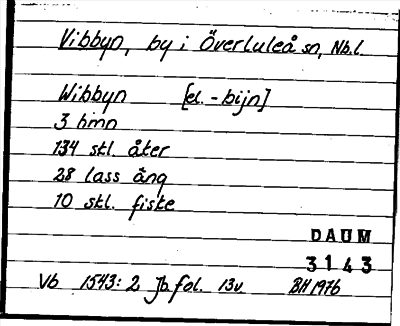 Vibbyn, by i Överluleå sn, Nb.l.
Wibbyn [el. -bijn]
3 hmn
134 skl. åker
28 lass äng
10 skl. fiske
DAUM
3143
Vb 1543:2 Jb fol. 13v BH 1976